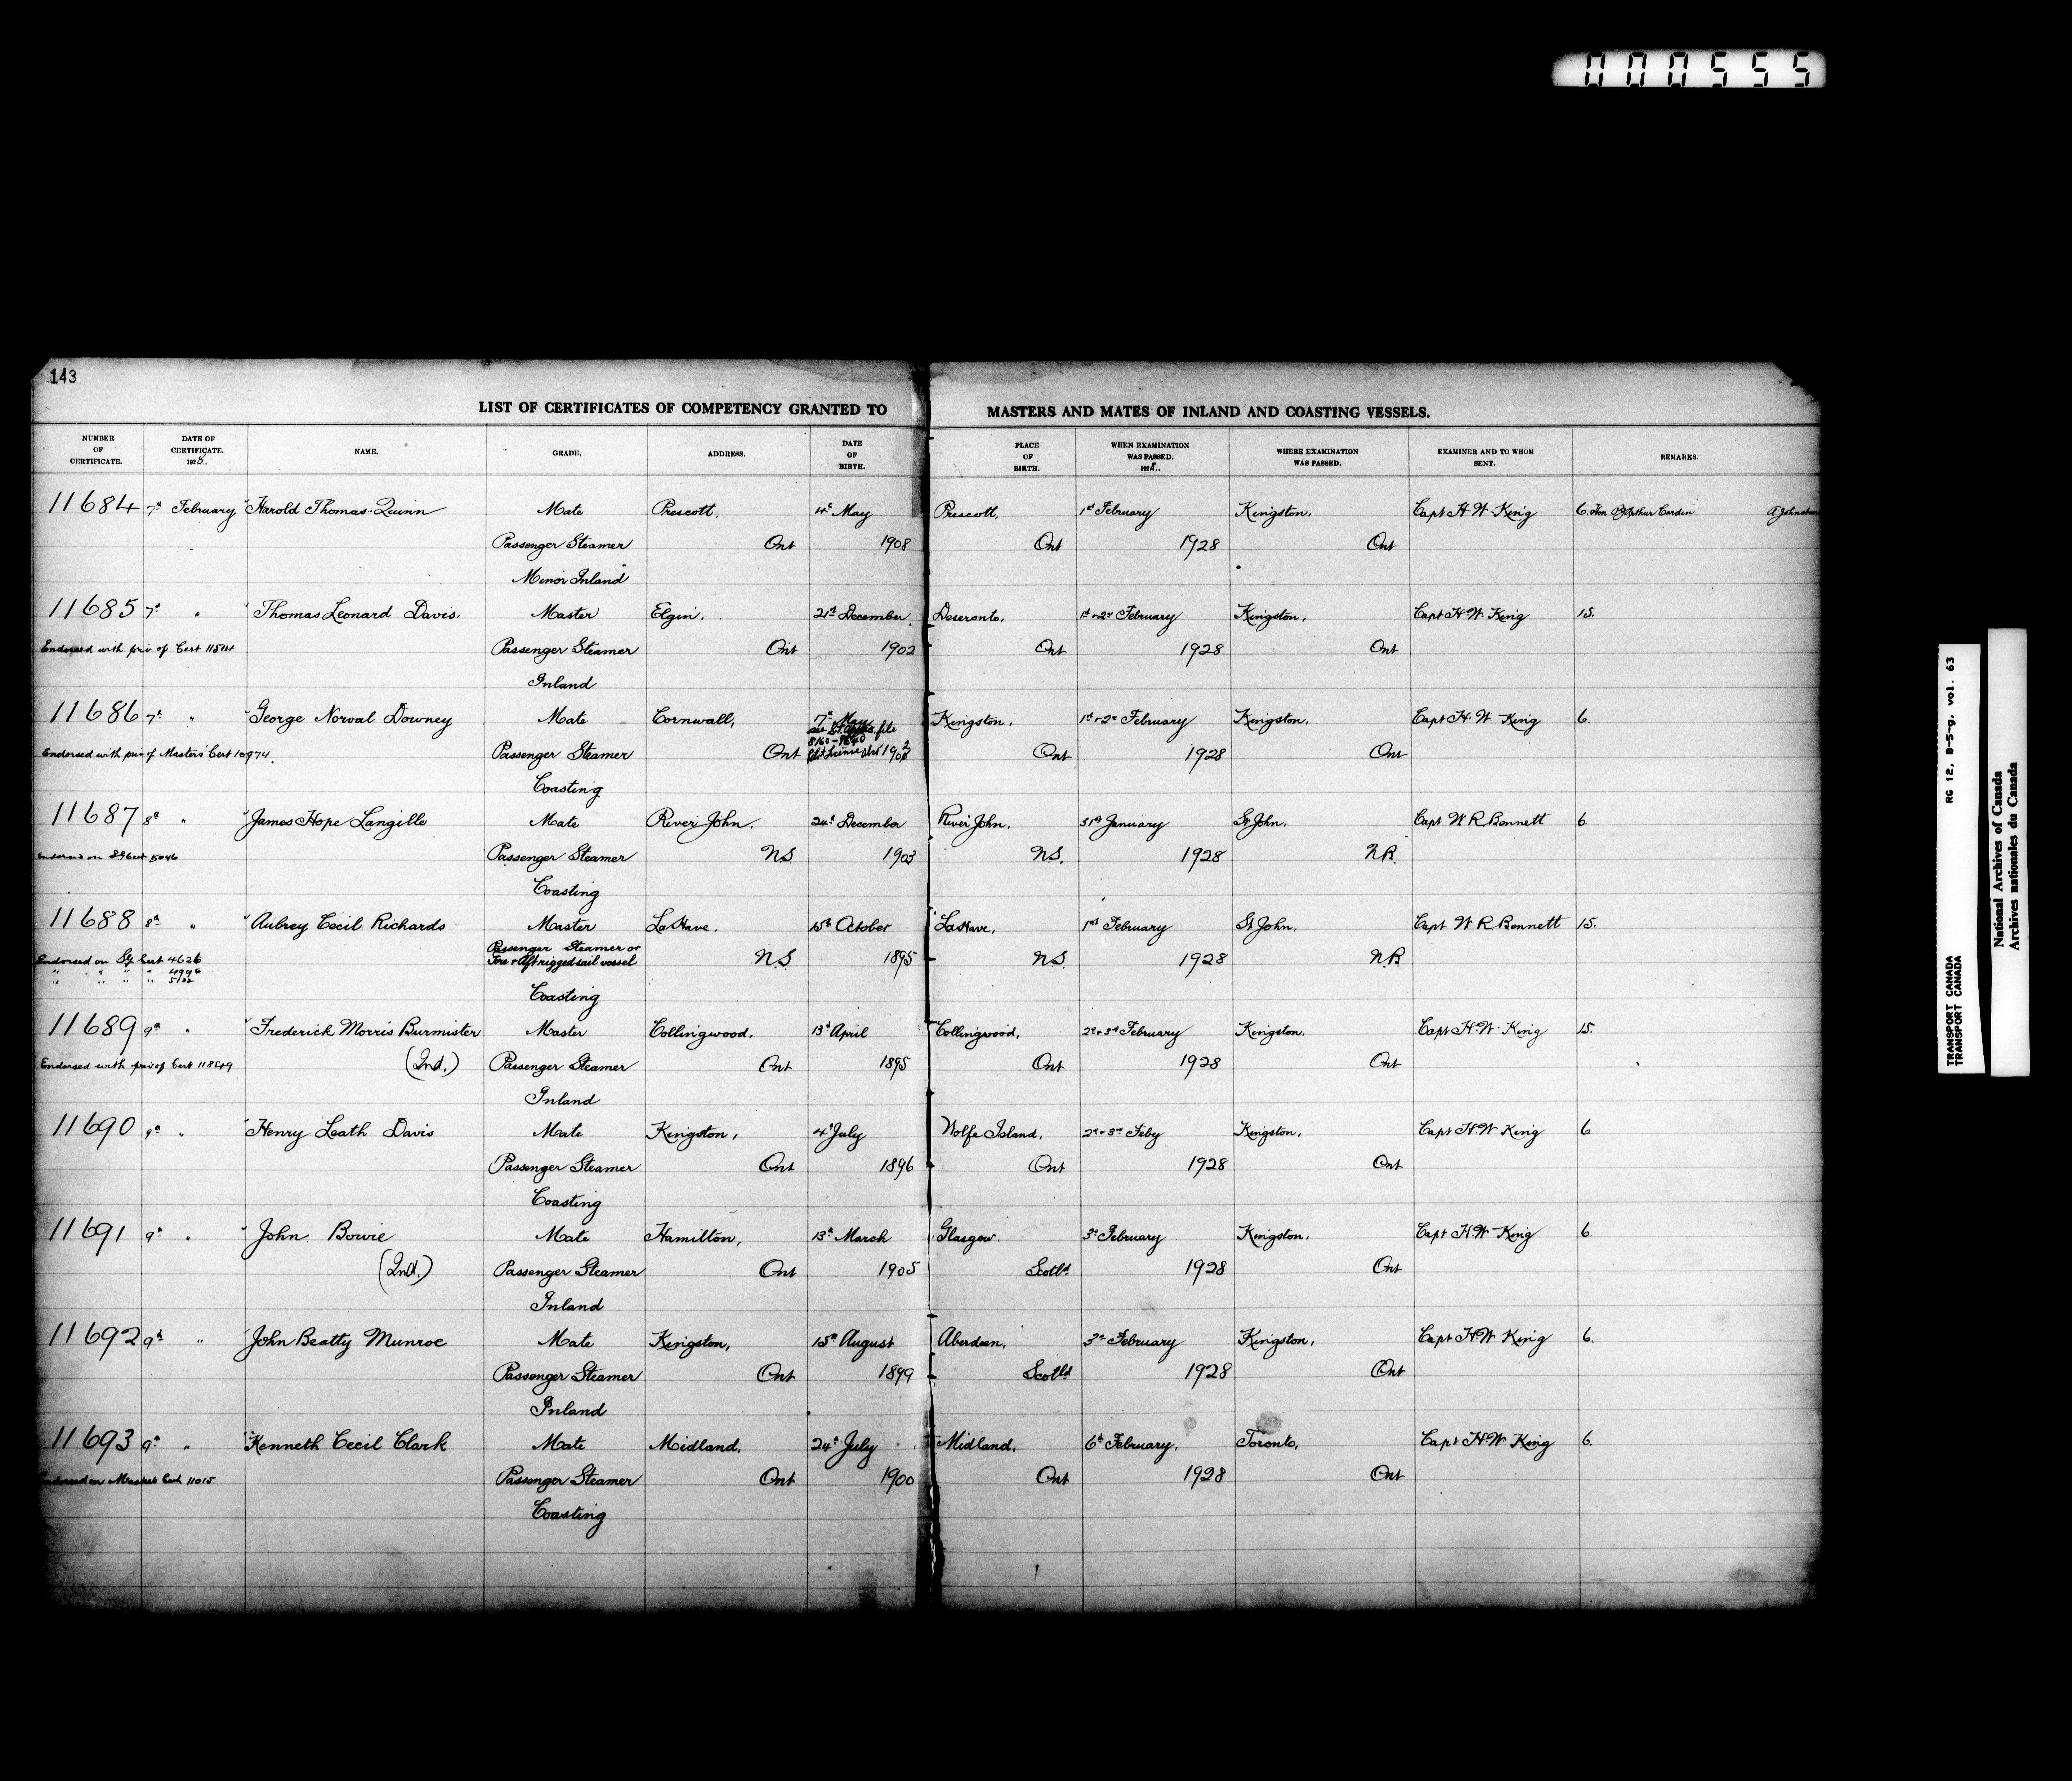 000555
143
LIST OF CERTIFICATES OF COMPETENCY GRANTED TO MASTERS AND MATES OF INLAND AND COASTING VESSELS.
NUMBER OF CERTIFICATE. DATE OF CERTIFICATE. 1928. NAME. GRADE. ADDRESS. DATE OF BIRTH. PLACE OF BIRTH. WHEN EXAMINATION WAS PASSED. 1928. WHERE EXAMINATION WAS PASSED. EXAMINER AND TO WHOM SENT. REMARKS.
11684 7th February Harold Thomas Quinn Mate Prescott, 4th May Prescott, 1st February Kingston, Capt H. W. King 6. Hon P J Arthur Cardin A Johnston
Passenger Steamer Ont 1908 Ont 1928 Ont
Minor Inland
11685 7th " Thomas Leonard Davis. Master Elgin. 21st December, Deseronto, 1st + 2nd February Kingston, Capt H. W. King 15.
Endorsed with priv. of Cert Passenger Steamer Ont 1902 Ont 1928 Ont
Inland
11686 7th " George Norval Downey Mate Cornwall, 17th May Kingston, 1st + 2nd February Kingston, Capt H. W. King 6.
Endorsed with priv of Masters' Cert 10974. Passenger Steamer Ont Ont 1928 Ont
Coasting
11687 8th " James Hope Langille Mate River John, 24th December River John, 31st January St John, Capt W R Bennett 6
Endorsed on Sg Cert 5046 Passenger Steamer N.S. 1903 N.S. 1928 N.B.
Coasting
11688 8th " Aubrey Cecil Richards Master LaHave. 15th October LaHave, 1st February St John, Capt W R Bennett 15.
Endorsed on Sg Cert 4626 Passenger Steamer or Fore & Aft rigged sail vessel N.S 1895 N.S. 1928 N.B
" " " "
" " " " 5122
Coasting
11689 9th " Frederick Morris Burmister Master Collingwood, 13th April Collingwood, 2nd + 3rd February Kingston, Capt H. W. King 15.
Endorsed with priv of Cert 11849 (Ind.) Passenger Steamer Ont 1895 Ont 1928 Ont
Inland
11690 9th " Henry Leath Davis Mate Kingston, 4th July Wolfe Island, 2nd + 3rd Feby Kingston, Capt H W King 6
Passenger Steamer Ont 1896 Ont 1928 Ont
Coasting
11691 9th " John Bowie Mate Hamilton, 13th March Glasgow. 3rd February Kingston, Capt H. W. King 6.
(Ind.) Passenger Steamer Ont 1905 Scotld 1928 Ont
Inland
11692 9th " John Beatty Munroe Mate Kingston, 15th August Aberdeen, 3rd February Kingston, Capt H. W. King 6.
Passenger Steamer Ont 1899 Scotld 1928 Ont
Inland
11693 9th " Kenneth Cecil Clark Mate Midland, 24th July Midland, 6th February, Toronto, Capt H. W. King 6.
Endorsed on Masters Cert 11015 Passenger Steamer Ont 1900 Ont 1928 Ont
Coasting
TRANSPORT CANADA RG 12, B-5-g, vol. 63
TRANSPORT CANADA
National Archives of Canada
Archives nationales du Canada